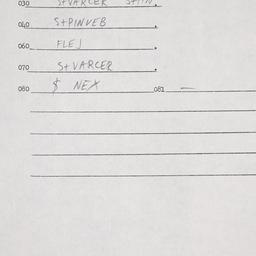 030 S+VARCER S+IN.
040 S+PINVEB .
060 FLEJ .
070 S+VARCER .
080 $ NEX 081 —